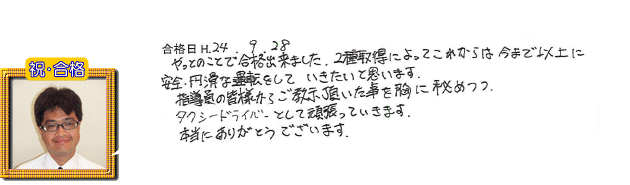 祝・合格
合格日 H.24.9.28
やっとのことで合格出来ました。2種取得によってこれからは今まで以上に
安全・円滑な運転をして いきたいと思います。
指導員の皆様からご教示頂いた事を胸に秘めつつ
タクシードライバーとして頑張っていきます。
本当にありがとうございます。